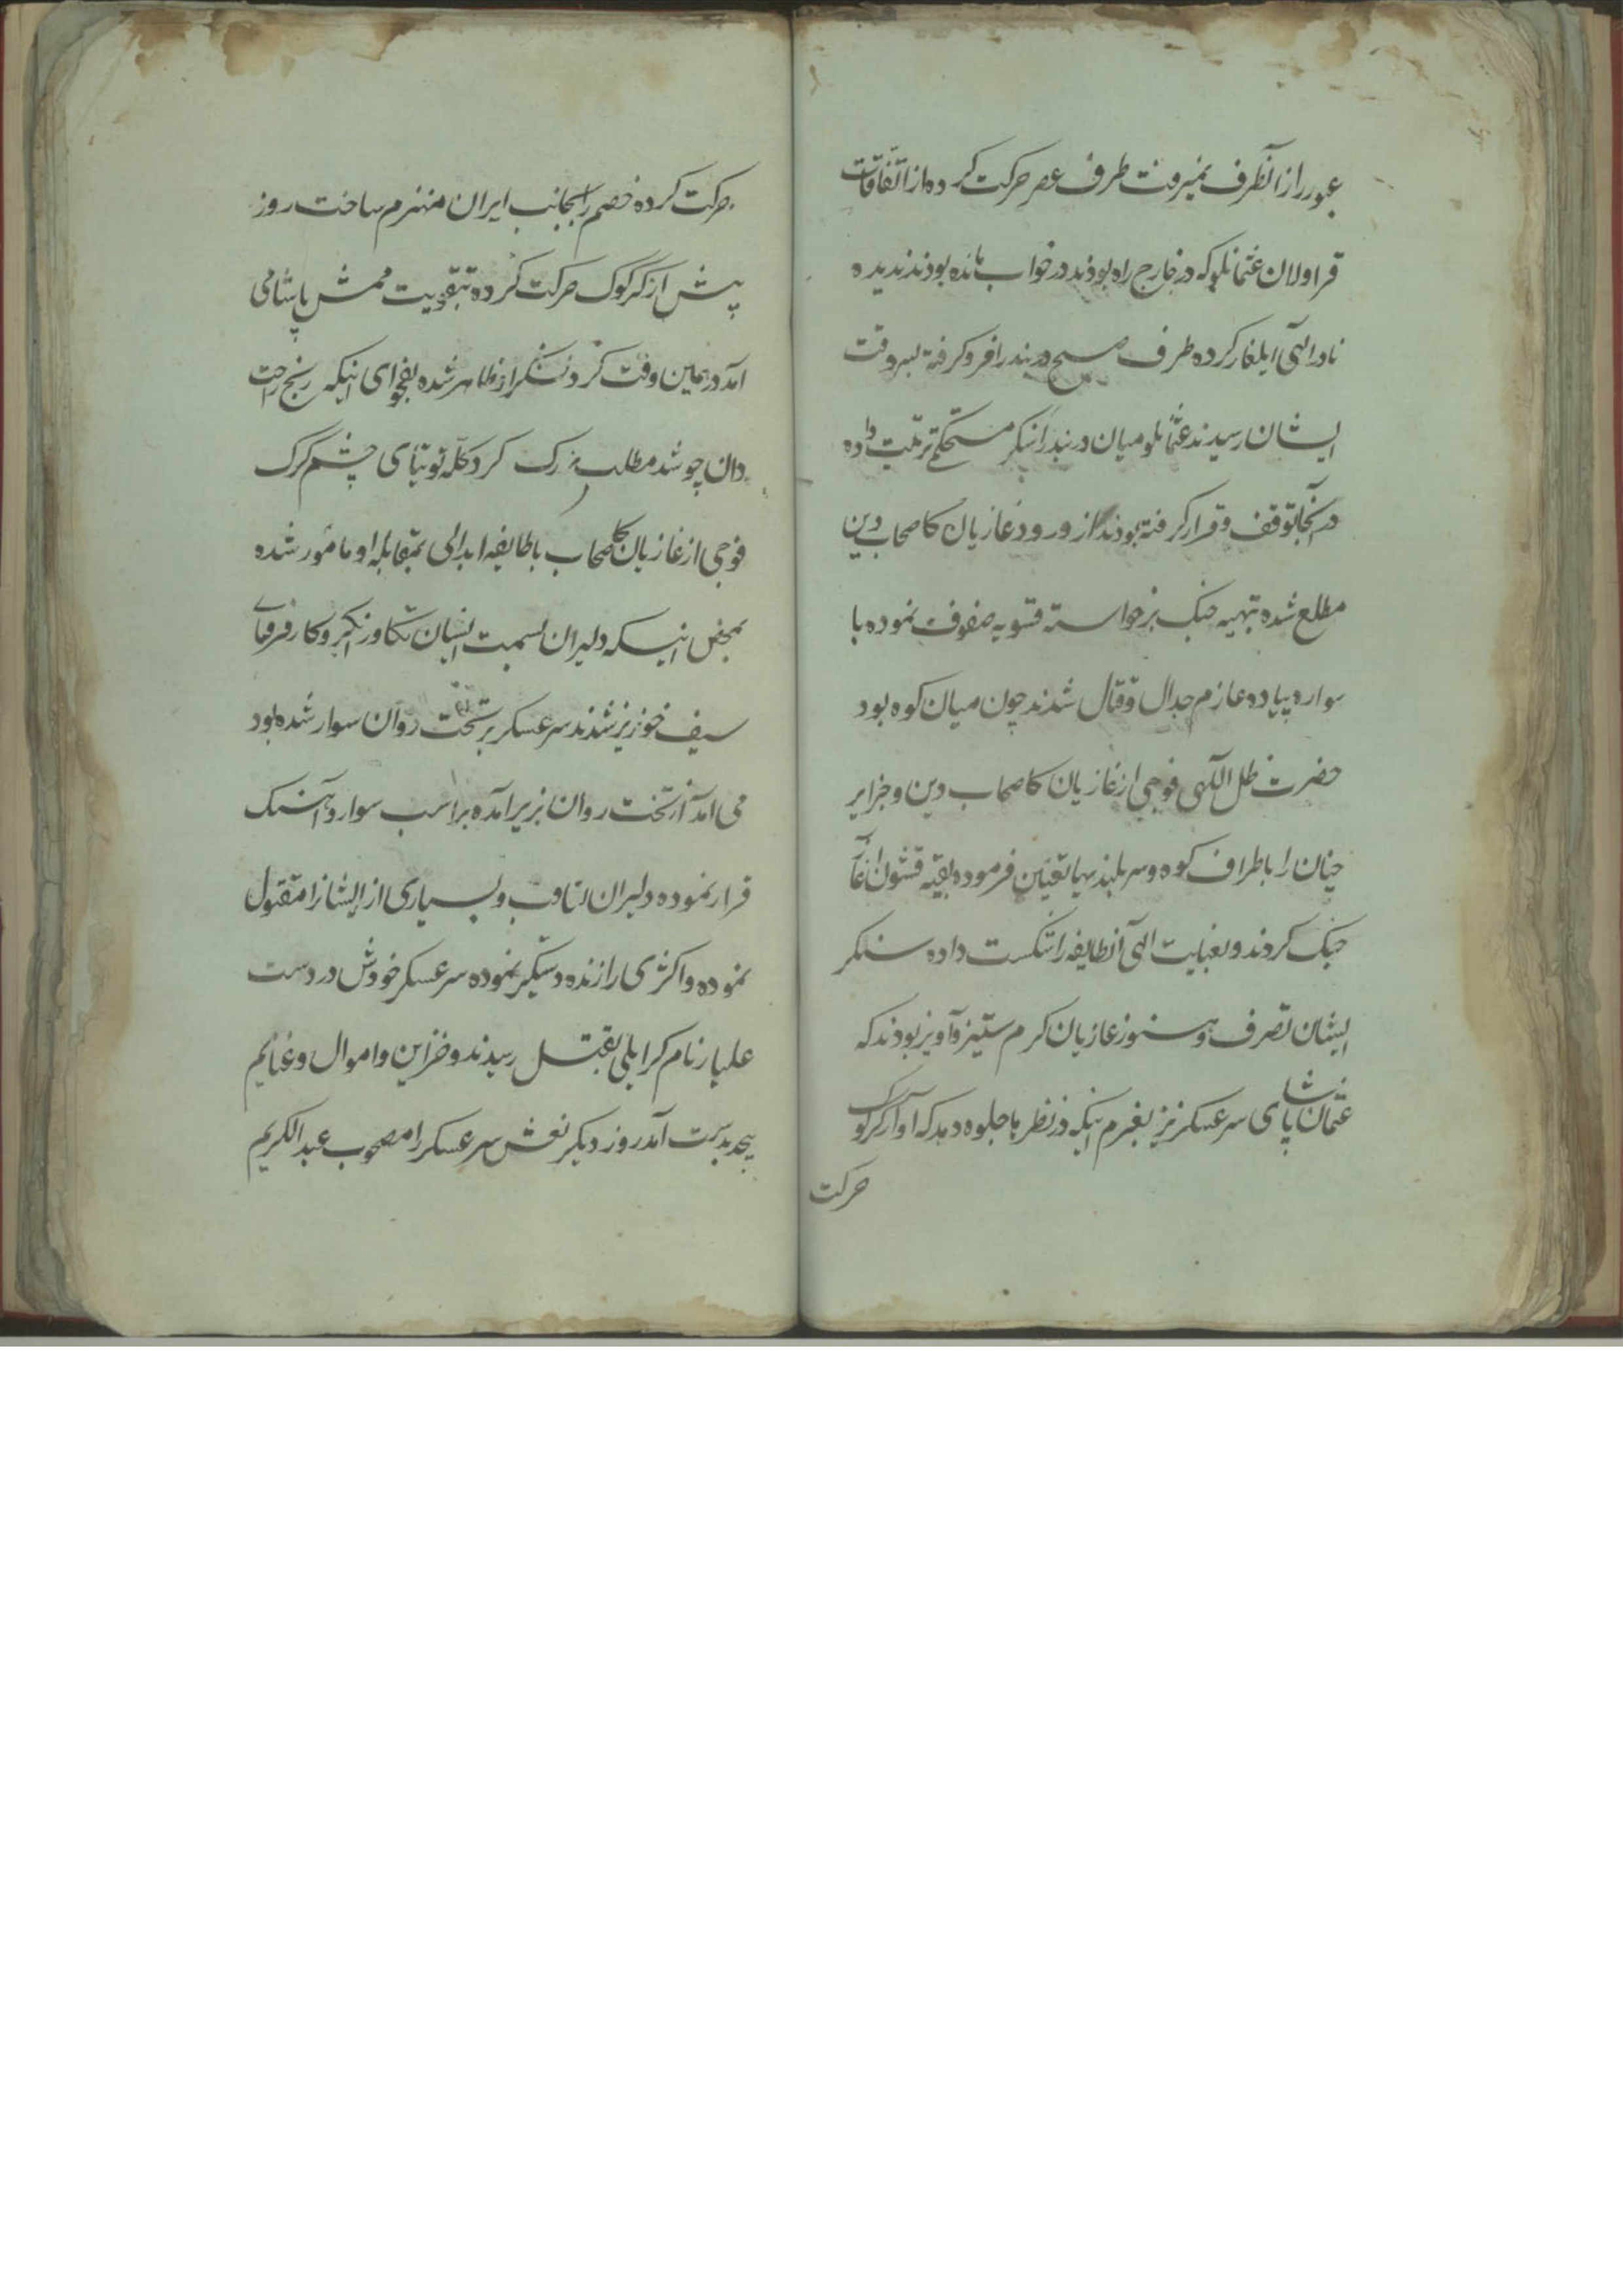 عبور از آنطرف نمیرفت طرف عصر حرکت کرده از اتفاقات
قراولان عثمانلو که در خارج راه بودند در خواب مانده بودند ندیده
نادر الهی ایلغار کرده طرف صبح دربند را فرو گرفته بسر وقت
ایشان رسیدند عثمانلو میان دربند را سنکر مستحکم ترتیب داده
در آنجا توقف و قرار گرفته بودند از ورود غازیان کاصحاب دین
مطلع شده بتهیه جنک برخواسته تسویه صفوف نموده با
سواره پیاده عازم جدال و قتال شدند چون میان کوه بود
حضرت ظل اللهی فوجی از غازیان کاصحاب دین و جزایر
چیان را باطراف کوه و سر بلندیها تعیین فرموده بقیه قشون
جنک کردند و بعنایت الهی آنطایفه را شکست داده سنکر
ایشان تصرف و هنوز غازیان کرم ستیز و آویز بودند که
عثمان پاشای سرعسکر نیز بعزم اینکه در نظرها جلوه دهد که از کرکوک
حرکت
حرکت کرده خصم را بجانب ایران منهزم ساخت روز
پیش از کرکوک حرکت کرده بتقویت ممش پاشا می
آمد در همین وقت کرد لشکر از او ظاهر شده بفحوای اینکه رنج راحت
دان چو شد مطلب بزرک کرد کله توتیای چشم کرک
فوجی از غازیان کاصحاب با طایفه ابدالی بمقابله او مأمور شده
بمحض اینکه دلیران بسمت ایشان تکاور انکیز و کارفرمای
سیف خونریز شدند سرعسکر بر تخت روان سوار شده بود
می آمد از تخت روان بزیر آمده بر اسب سوار و آهنک
فرار نموده دلیران تعاقب و بسیاری از ایشانرا مقتول
نموده و اکثری را زنده دستکیر نموده سرعسکر خودش در دست
علیار نام کرایلی بقتل رسیدند و خزاین و اموال و غنایم
بیحد بدست آمد روز دیکر نعش سرعسکر را مصحوب عبدالکریم